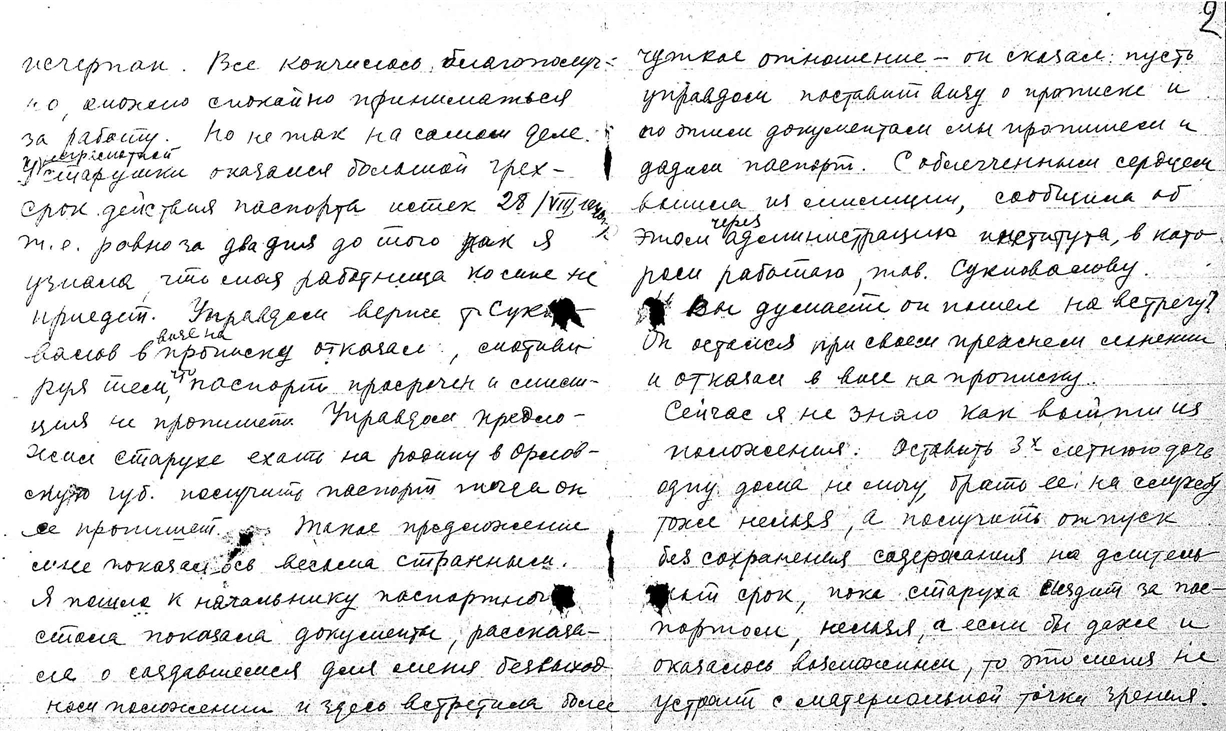 2
исчерпан. Все кончилось благополуч-
но, можно спокойно приниматься
за работу. Но не так на самом деле.
У неграмотной
старушки оказался большой грех –
срок действия паспорта истек 28/VIII,
т.е. ровно за два дня до того как я
узнала, что моя работница ко мне не
приедет. Управдом верше т. Суко-
валов в визе на прописку отказал, мотиви
руя тем, что паспорт просрочен и мили-
ция не пропишет. Управдом предло-
жил старухе ехать на родину в Орлов-
скую губ. получить паспорт тогда он
ее пропишет. Такое предложение
мне показалось весьма странным.
Я пошла к начальнику паспортного
стола показала документы, рассказа-
ла о создавшемся для меня безвыход
ном положении и здесь встретила более
чуткое отношение – он сказал: пусть
управдом поставит визу о прописке и
по этим документам мы пропишем и
дадим паспорт. С облегченным сердцем
вышла из милиции, сообщила об
этом через администрацию института, в кото-
ром работаю, тов. Суковалову.
Вы думаете он пошел на встречу?
Он остался при своем прежнем мнении
и отказал в визе на прописку.
Сейчас я не знаю как выйти из
положения. Оставить 3х летнюю дочь
одну дома не могу, брать ее на службу
тоже нельзя, а получить отпуск
без сохранения содержания на длитель
ный срок, пока старуха съездит за пас-
портом, нельзя, а если бы даже и
оказалось возможным, то это меня не
устроит с материальной точки зрения.